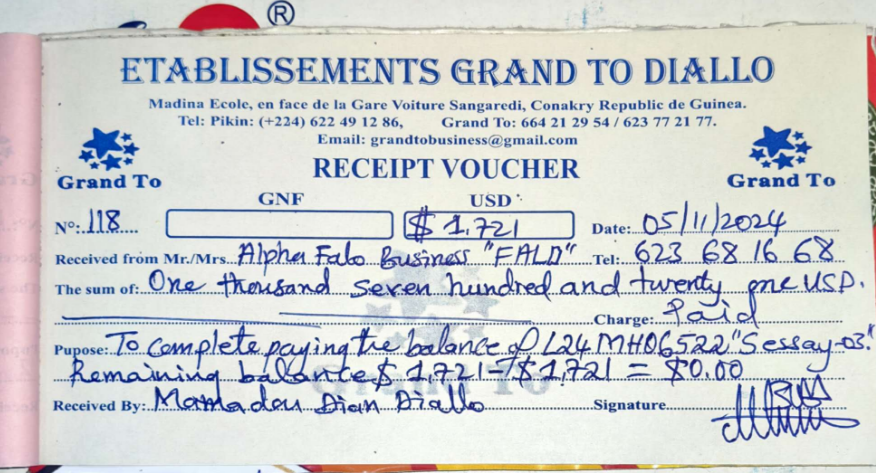 ®
ETABLISSEMENTS GRAND TO DIALLO
Madina Ecole, en face de la Gare Voiture Sangaredi, Conakry Republic de Guinea.
Tel: Pikin: (+224) 622 49 12 86, Grand To: 664 21 29 54 / 623 77 21 77.
Email: grandtobusiness@gmail.com
Grand To
RECEIPT VOUCHER
Grand To
GNF USD
N°: 118 $ 1,721 Date: 05/11/2024
Received from Mr./Mrs. Alpha Falo Business "FALD" Tel: 623 68 16 68
The sum of: One thousand seven hundred and twenty one USD.
Charge: Paid
Pupose: To complete paying the balance of L24 MH06522 "Sessay-03."
Remaining balance $ 1,721 - $1,721 = $0.00
Received By: Mamadou Dian Diallo Signature